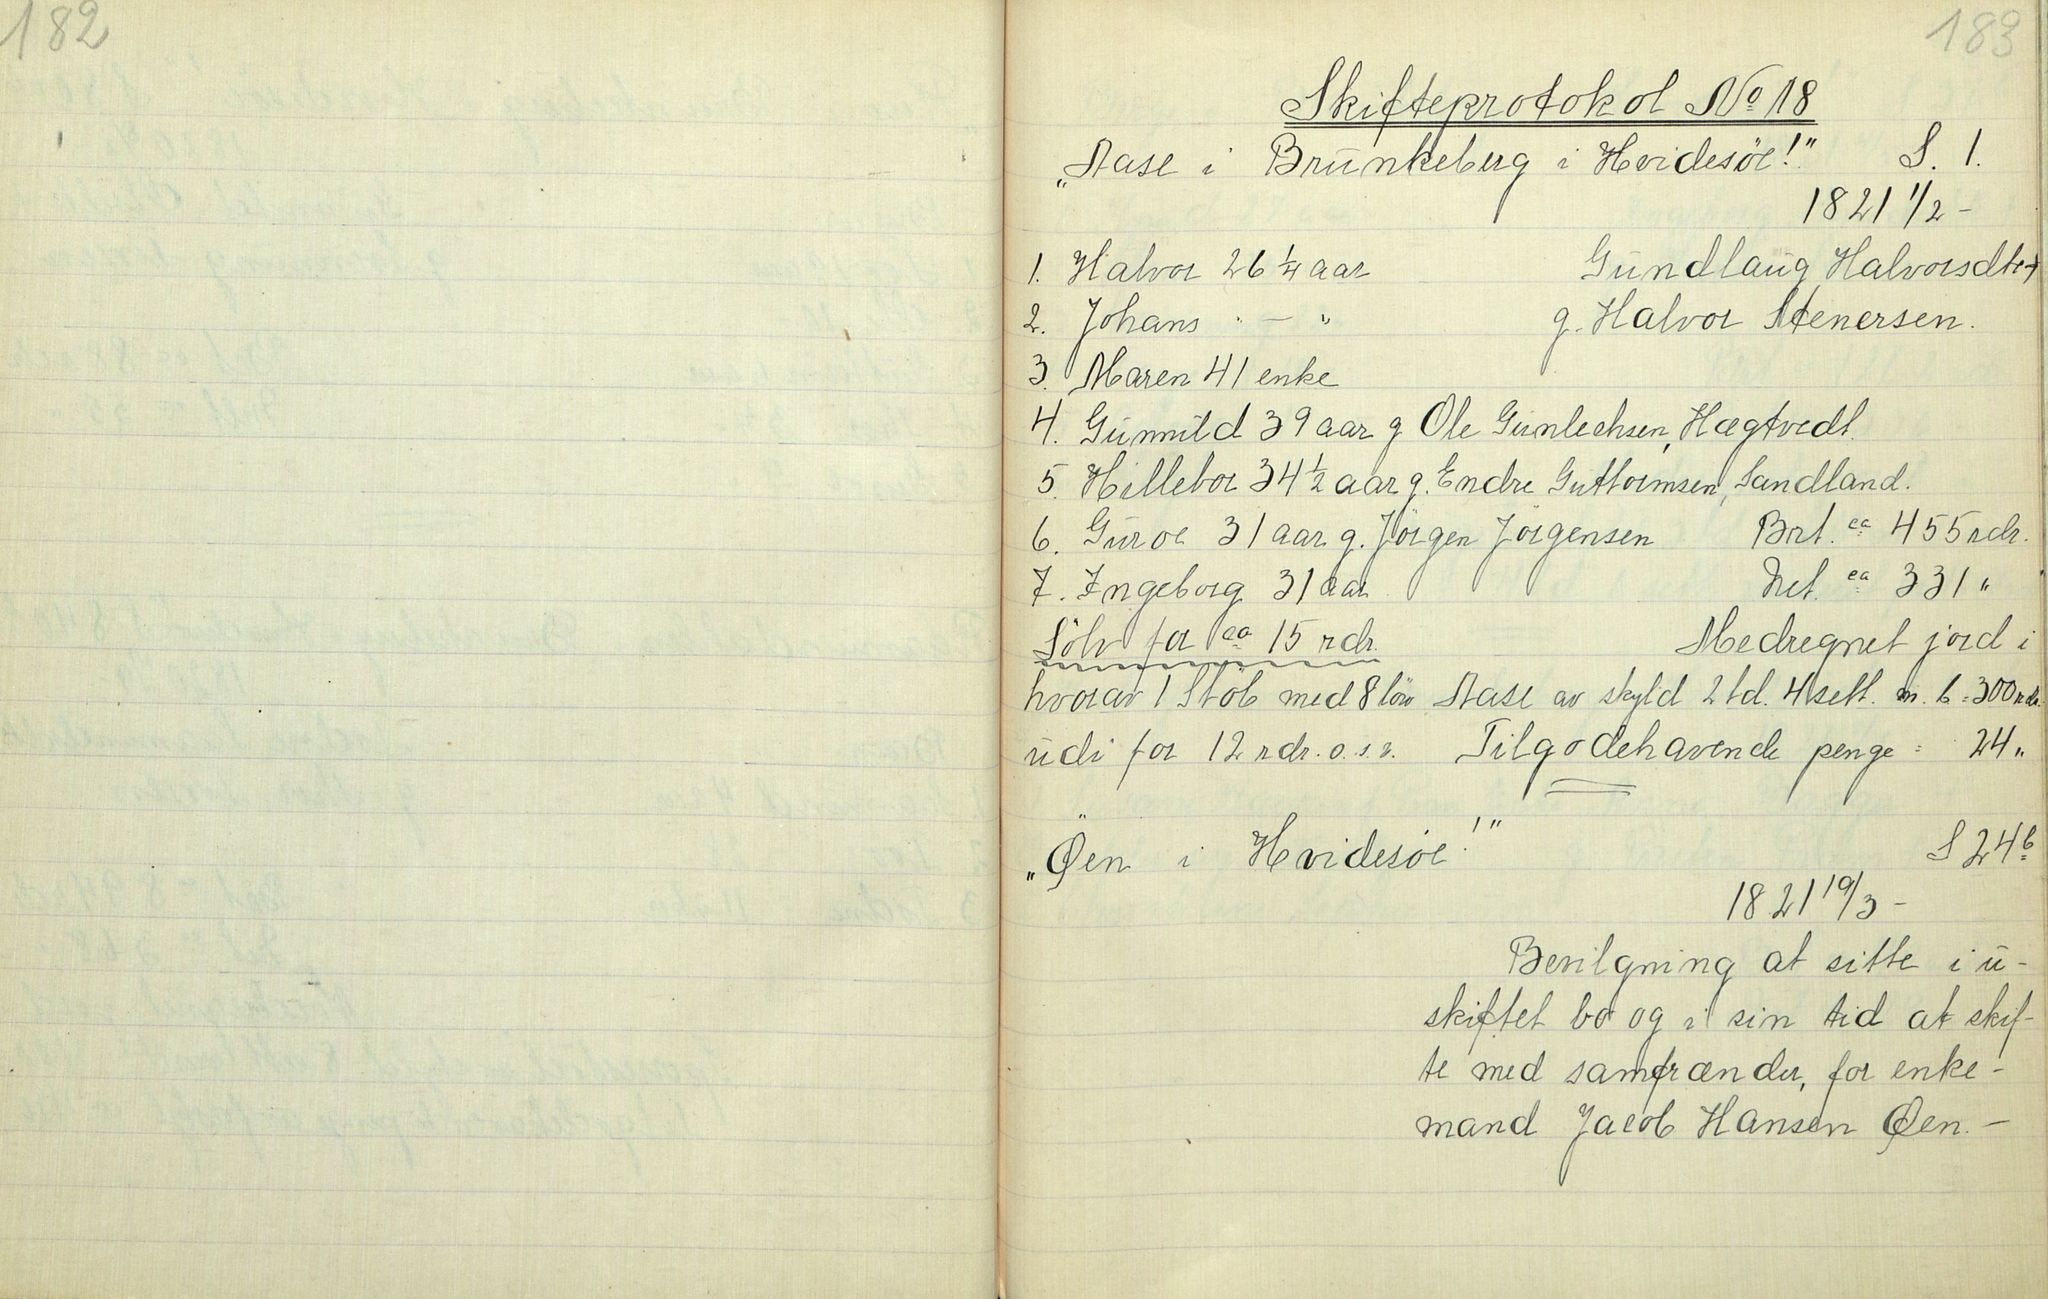 182
183
Skifteprotokol No 18
„Aase i Brunkeberg i Hvidesöe!" S. 1.
1821 1/2 -
1. Halvor 26 1/4 aar Gundlaug Halvorsdtr +
2. Johans " — " g. Halvor Stenersen.
3. Maren 41 enke
4. Gunnild 39 aar g Ole Gunlechsen, Hægtvedt.
5. Hillebor 34 1/2 aar g. Endre Guttormsen, Sandland.
6. Guroe 31 aar g. Jörgen Jörgensen Brt. ca 455 rdr.
7. Ingeborg 31 aar Net. ca 331 "
Sölv for ca 15 rdr. Medregnet jord i
hvorav 1 Stöb med 8 löv Aase av skyld 2 td. 4 sett. m. b = 300 rdr.
udi for 12 rdr. o.s.v. Tilgodehavende penge = 24 "
„Øen i Hvidesöe!" S 24 b
1821 19/3 -
Bevilgning at sitte i u-
skiftet bo og i sin tid at skif-
te med samfrænder, for enke-
mand Jacob Hansen Øen. -